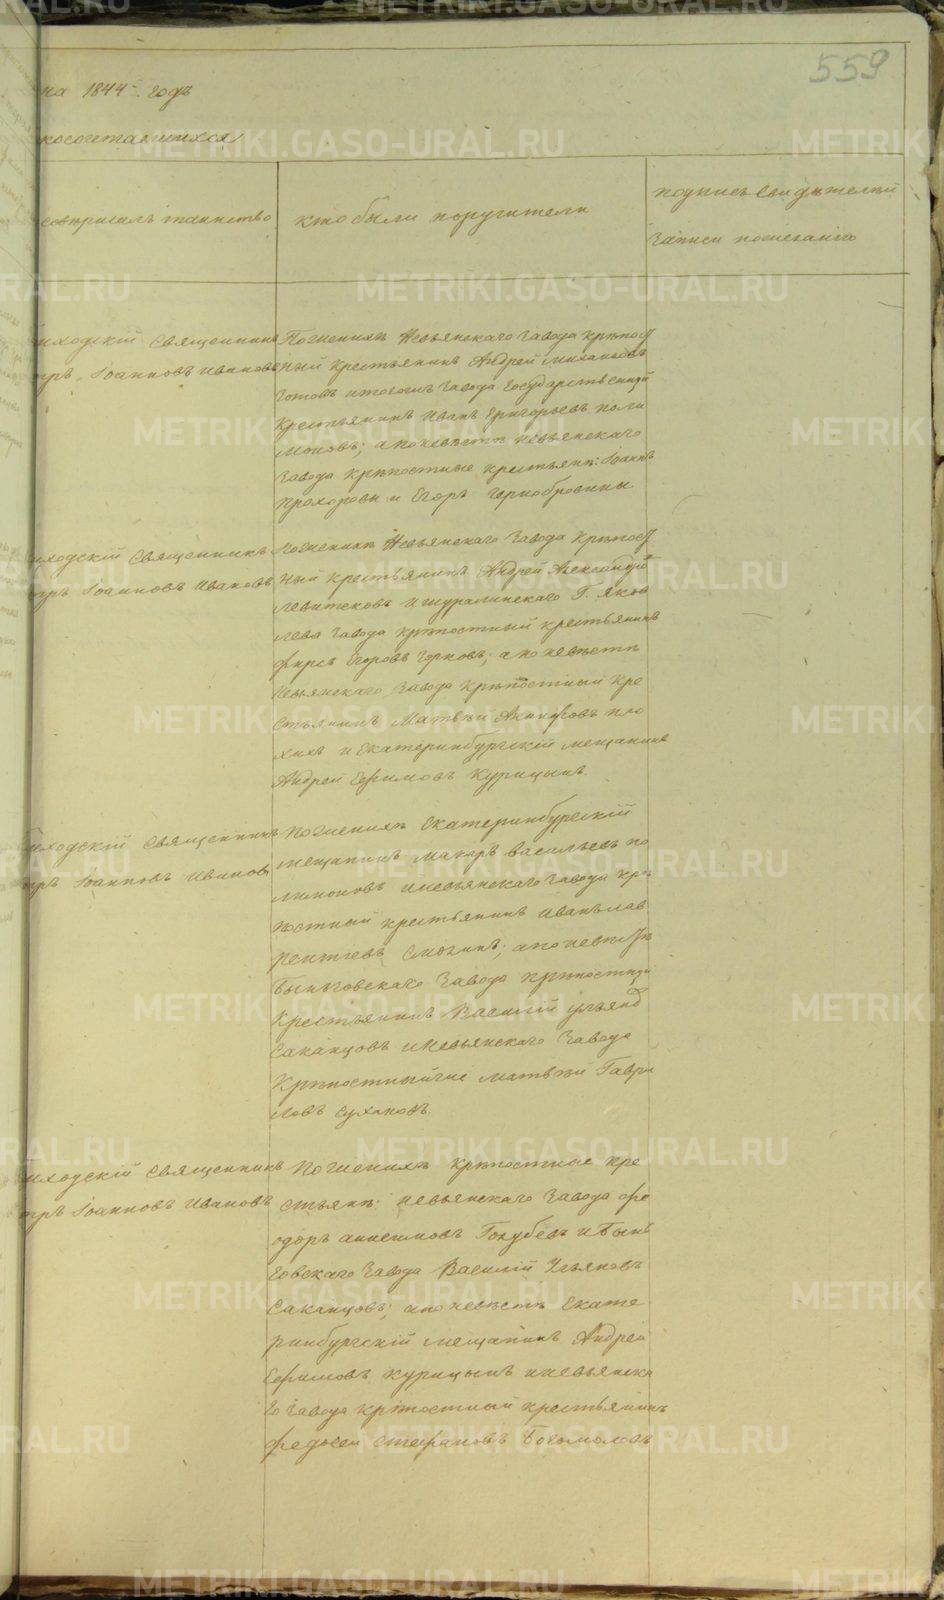 559
на 1844 годъ
косочетавшихся
совершалъ таинство
кто были поручители
подпись свидѣтелей
записи по желанію
иходскій Священникъ
тръ Іоанновъ Ивановъ
По женихѣ Невьянскаго завода крѣпост
ный крестьянинъ Андрей Михайловъ
завода Государственный
крестьянинъ Иванъ Григорьевъ поли
моновъ; а по невѣстѣ Невьянскаго
завода крѣпостные крестьяне: Іоаннъ
Прохоровы и Егоръ Чернобровины
иходскій Священникъ
тръ Іоанновъ Ивановъ
По женихѣ Невьянскаго завода крѣпост
ный крестьянинъ Андрей Александровъ
и шуралинскаго Г. Яков
лева завода крѣпостный крестьянинъ
фирсъ Егоровъ; а по невѣстѣ
Невьянскаго завода крѣпостный кре
стьянинъ Матвей Акинфовъ пло
хихъ и Екатеринбургскій мещанинъ
Андрей Ефимовъ Курицынъ.
иходскій Священникъ
тръ Іоанновъ Ивановъ
По женихѣ Екатеринбургскій
мещанинъ Макаръ Васильевъ по
лимоновъ и Невьянскаго завода крѣ
постный крестьянинъ Иванъ Лав
рентьевъ; а по невѣстѣ
Быньговскаго завода крѣпостный
Крестьянинъ Василій Ульяновъ
Саканцовъ и Невьянскаго завода
Крѣпостный же Матвѣй Гаври
ловъ Сухановъ.
иходскій Священникъ
тръ Іоанновъ Ивановъ
По женихѣ крѣпостные кре
стьяне: Невьянскаго завода фе
одоръ Анисимовъ Голубевъ и Бынь
говскаго завода Василій Ульяновъ
Саканцовъ; а по невѣстѣ Екате
ринбургскій мещанинъ Андрей
Ефимовъ Курицынъ и Невьянска
го завода крѣпостный крестьянинъ
федосей Стефановъ Богомоловъ
METRIKI.GASO-URAL.RU